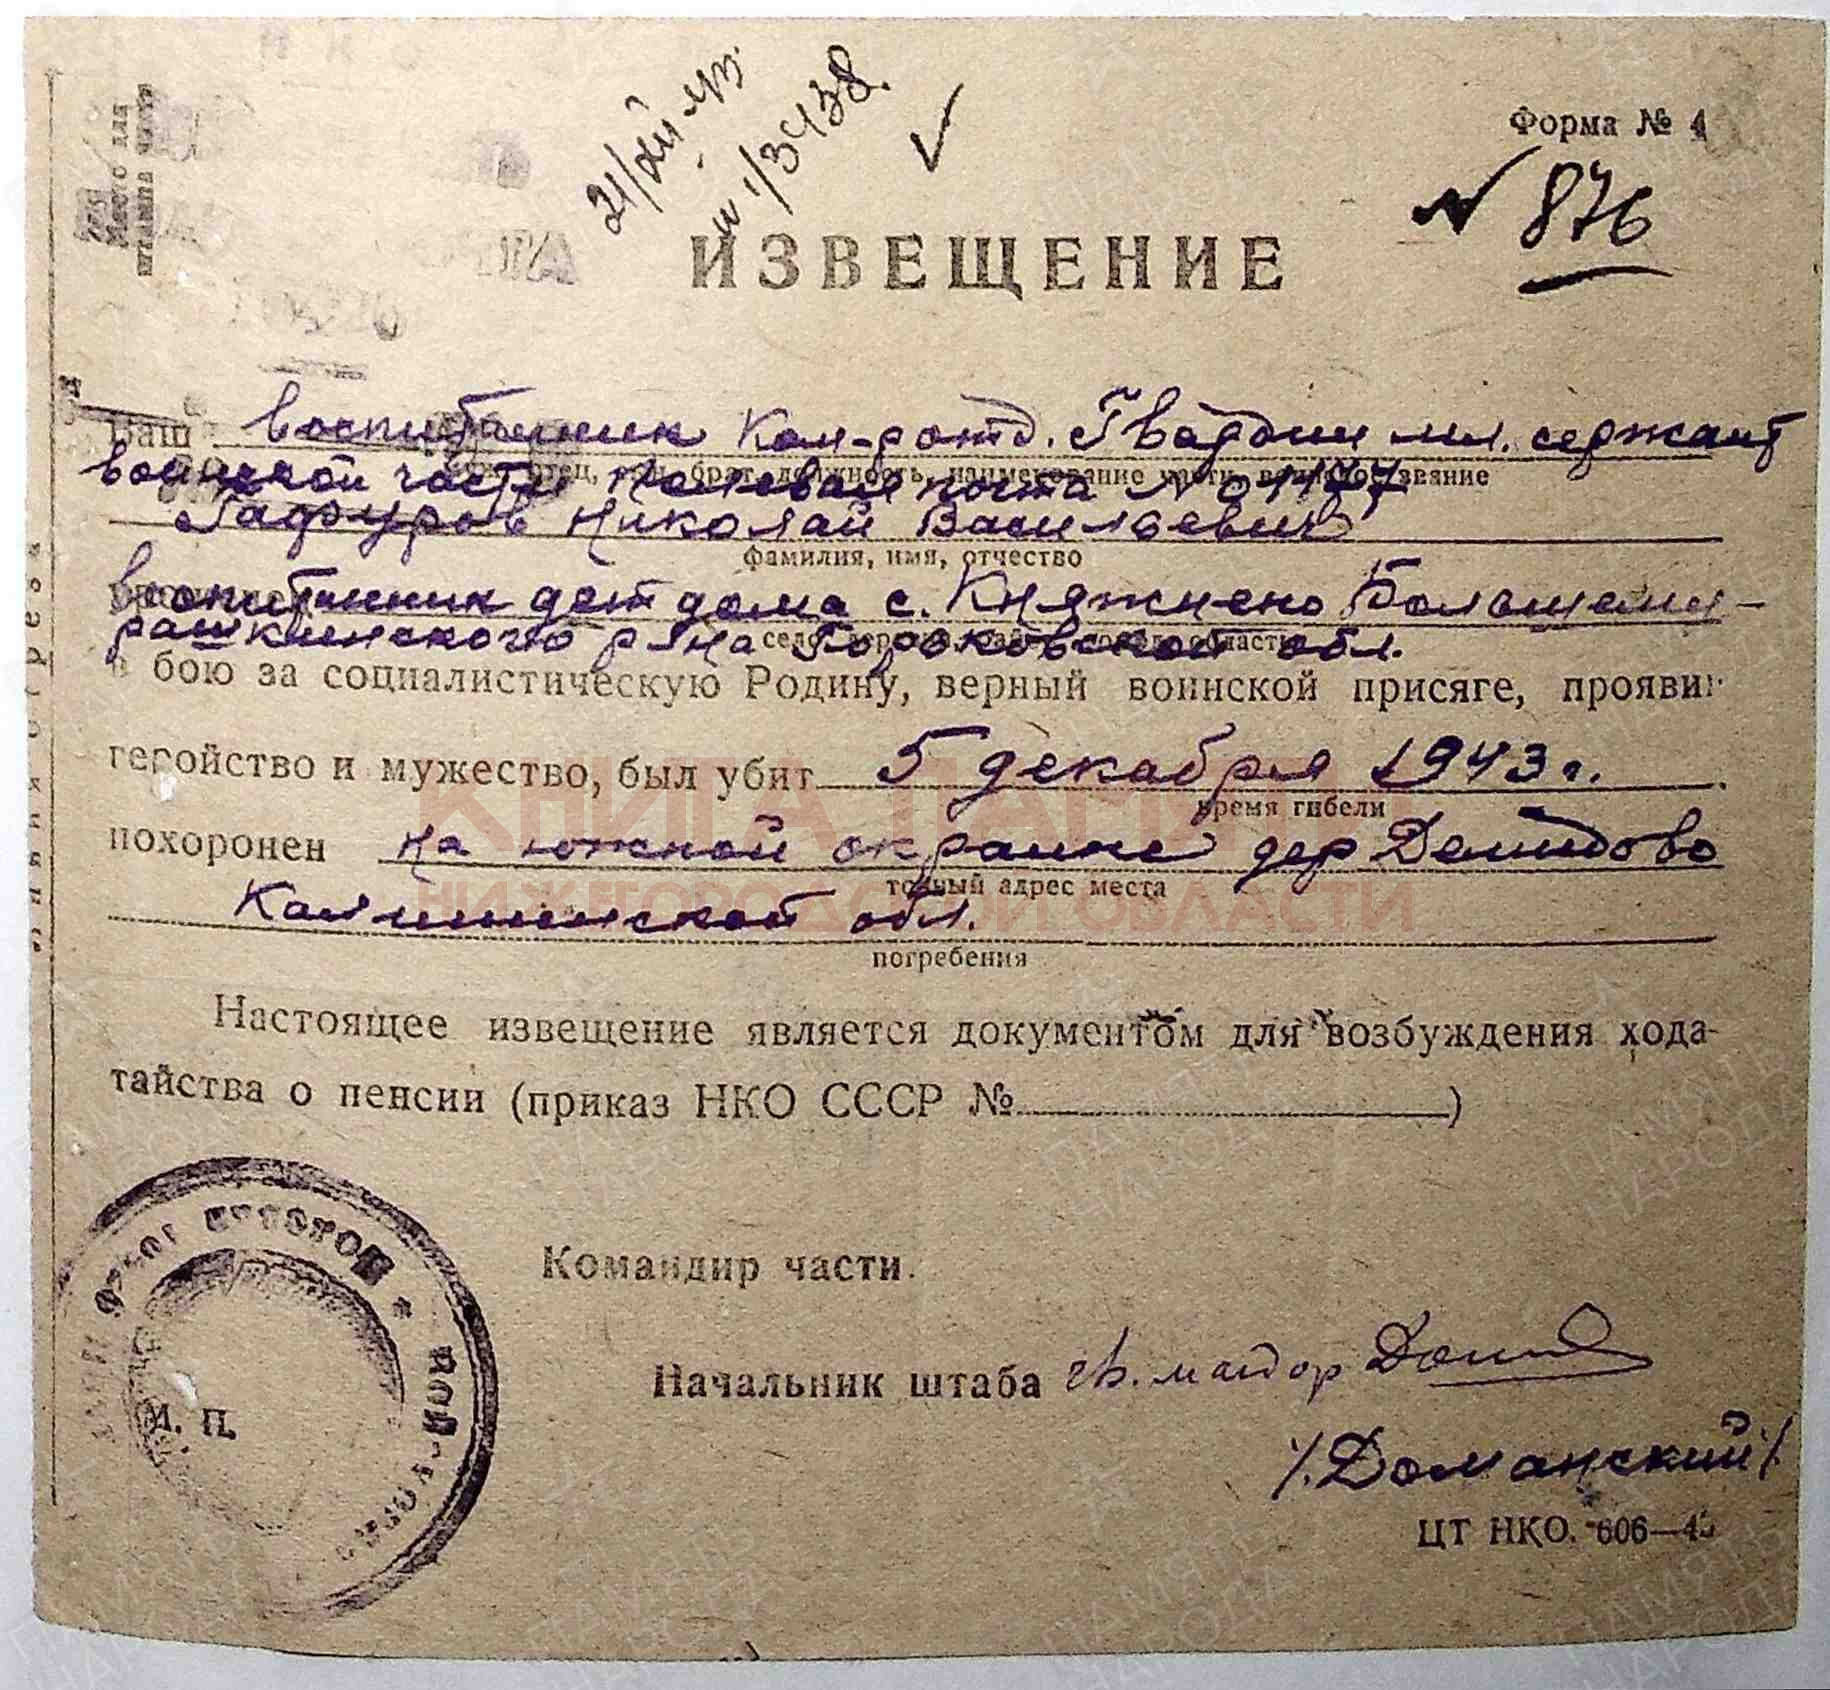 Место для
штампа части
21/XII-43.
и 1/3438.
Форма № 1
№ 876
ИЗВЕЩЕНИЕ
Ваш воспитанник Ком-р отд. Гвардии мл. сержант
воинской части Полевая почта №
Гафуров Николай Васильевич
фамилия, имя, отчество
воспитанник дет дома с. Княжнено Большема-
рашкинского р-на Горьковской обл.
в бою за социалистическую Родину, верный воинской присяге, проявив
геройство и мужество, был убит 5 декабря 1943 г.
время гибели
похоронен на южной окраине дер Демидово
точный адрес места
Калининской обл.
погребения
Настоящее извещение является документом для возбуждения хода-
тайства о пенсии (приказ НКО СССР № )
Командир части.
Начальник штаба гв. майор
/Доманский/
М. П.
ЦТ НКО. 606—43
КНИГА ПАМЯТИ
НИЖЕГОРОДСКОЙ ОБЛАСТИ
ПАМЯТЬ НАРОДА